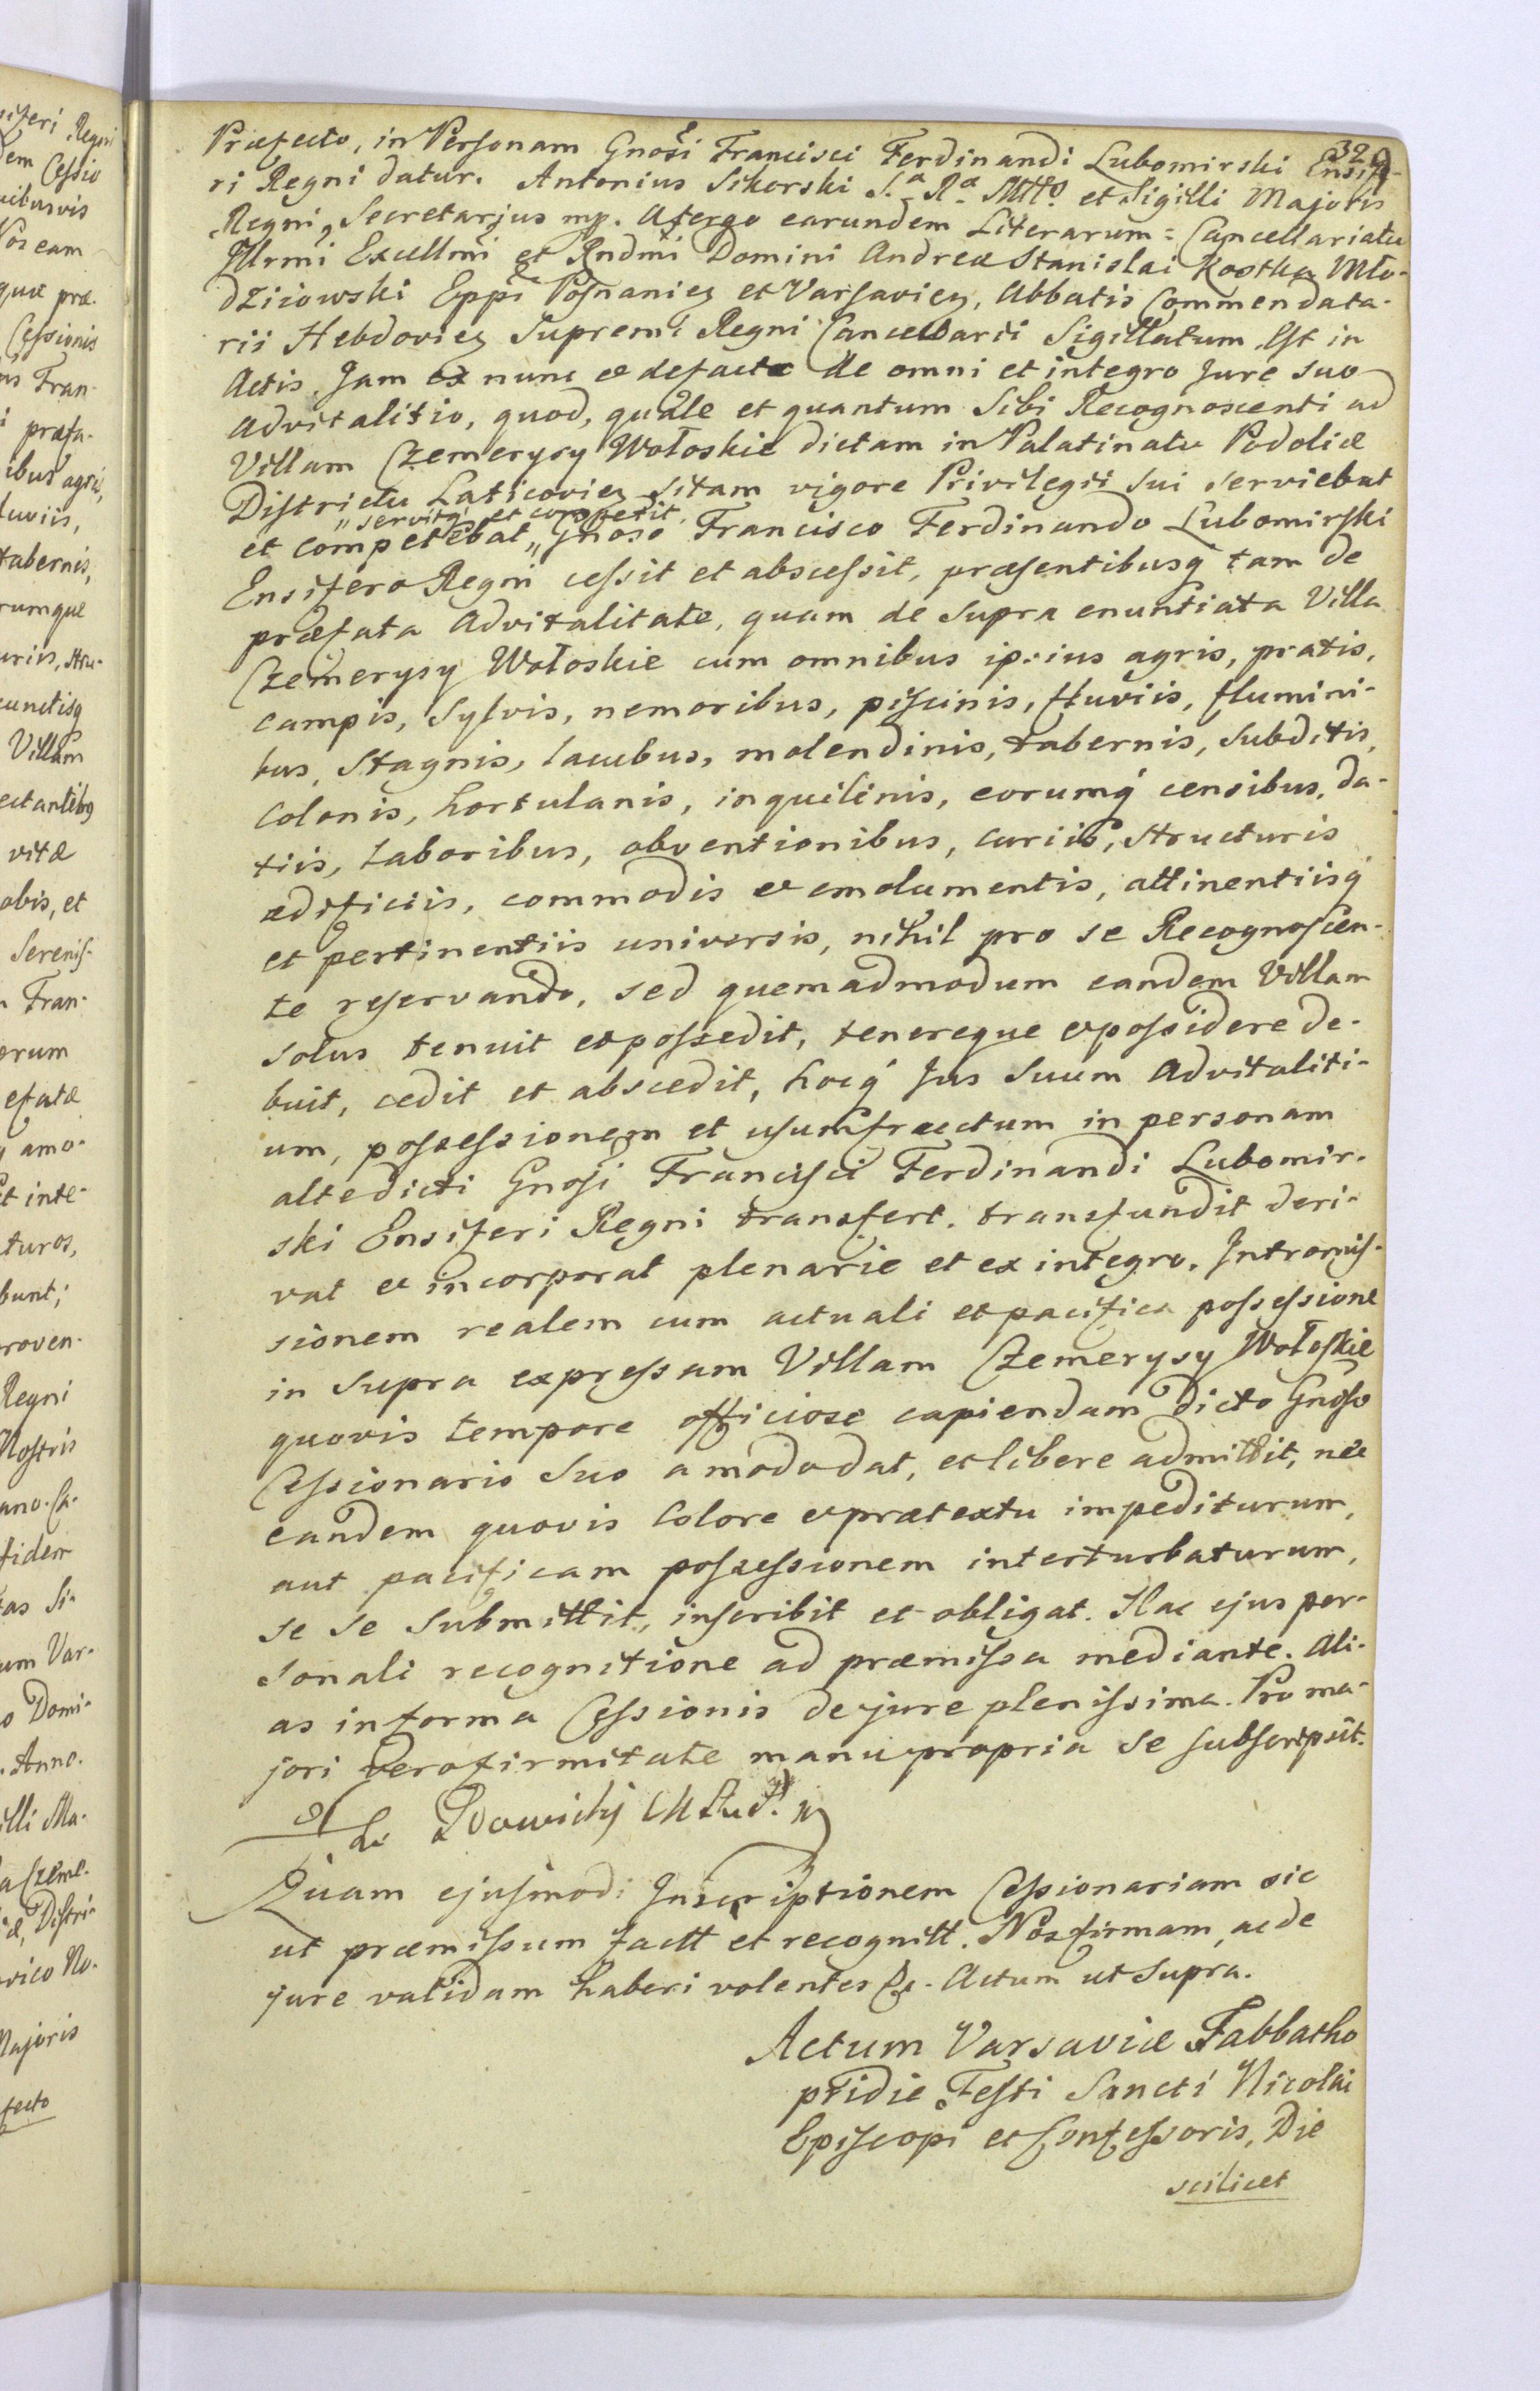 329
Præfecto, in Personam Gnosi Francisci Ferdinandi Lubomirski Ensife-
ri Regni datur. Antonius Sikorski S.a R.a Mtts et Sigilli Majoris
Regni, Secretarjus mp. Atergo earundem Literarum = Cancellariatu
Illrmi Excellmi et Rndmi Domini Andreæ Stanislai Kostka Mło-
dziiowski Eppi Posnanien et Varsavien, Abbatis Commendata-
rii Hebdovien Supremi Regni Cancellarii Sigillatum Est in
Actis. Jam ex nunc et defacto de omni et integro Jure suo
Advitalitio, quod, quale et quantum Sibi Recognoscenti ad
Villam Czemerysy Wołoskie dictam in Palatinatu Podoliæ
Districtu Laticovien sitam vigore Privilegii sui serviebat
„servitq et competit,
et competebat „ Gnoso Francisco Ferdinando Lubomirski
Ensifero Regni cessit et abscessit, præsentibusq tam de
præfata Advitalitate, quam de supra enuntiata Villa
Czemerysy Wołoskie cum omnibus ipsius agris, pratis,
campis, Sylvis, nemoribus, piscinis, fluviis, flumini-
bus, Stagnis, lacubus, molendinis, tabernis, Subditis,
Colonis, hortulanis, inquilinis, eorumq censibus, da-
tiis, laboribus, obventionibus, curiis, structuris
ædificiis, commodis et emolumentis, attinentiisq
et pertinentiis universis, nihil pro se Recognoscen-
te reservando, sed quemadmodum eandem Villam
solus tenuit et possedit, tenereque et possidere de-
buit, cedit et abscedit, hocq Jus Suum Advitaliti-
um, possessionem et usumfructum in personam
altedicti Gnosi Francisci Ferdinandi Lubomir-
ski Ensiferi Regni transfert, transfundit deri-
vat et incorporat plenarie et ex integro. Intromis-
sionem realem cum actuali et pacifica possessione
in supra expressam Villam Czemerysy Wołoskie
quovis tempore officiose capiendam dicto Gnoso
Cessionario Suo amodo dat, et libere admittit, nec
eandem quovis Colore et prætextu impediturum,
aut pacificam possessionem interturbaturum,
se se Submittit, inscribit et obligat. Hac ejus per-
sonali recognitione ad præmissa mediante. Ali-
as in forma Cessionis de jure plenissima. Pro ma-
jori vero firmitate manu propria se subscripsit.
Quam ejusmodi Inscriptionem Cessionariam sic
ut præmissum factt et recognitt. Nos firmam, ac de
jure validam haberi volentes &c. Actum ut supra.
Actum Varsaviæ Sabbatho
pridie Festi Sancti Nicolai
Episcopi et Confessoris, Die
scilicet